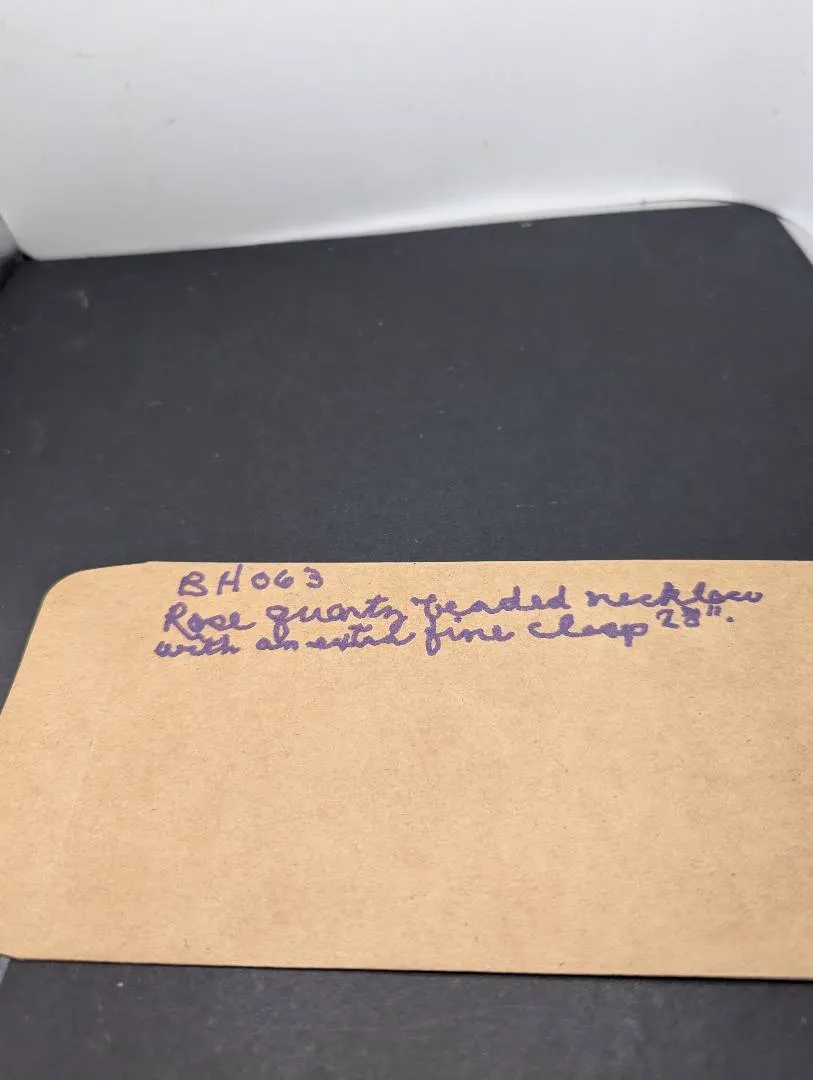 BH063
Rose quartz beaded necklace
with an extra fine clasp 28".